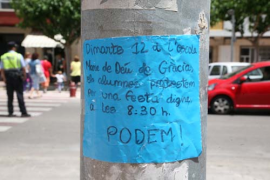 Dimarts 12 a l'escola
Mare de Déu de Gràcia
els alumnes protesten
per una festa digna
a les 8-30 h.
PODEM!